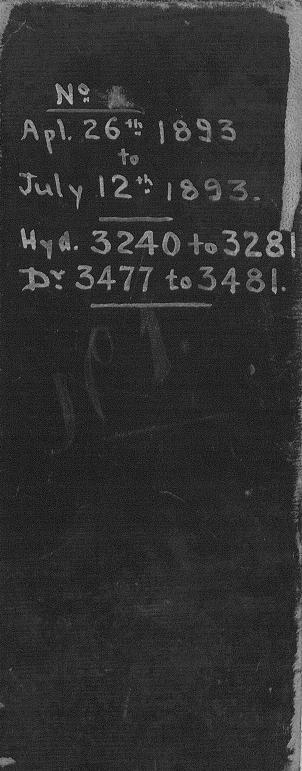 No
Apl. 26th 1893
to
July 12th 1893.
Hyd. 3240 to 3281
Dr. 3477 to 3481.